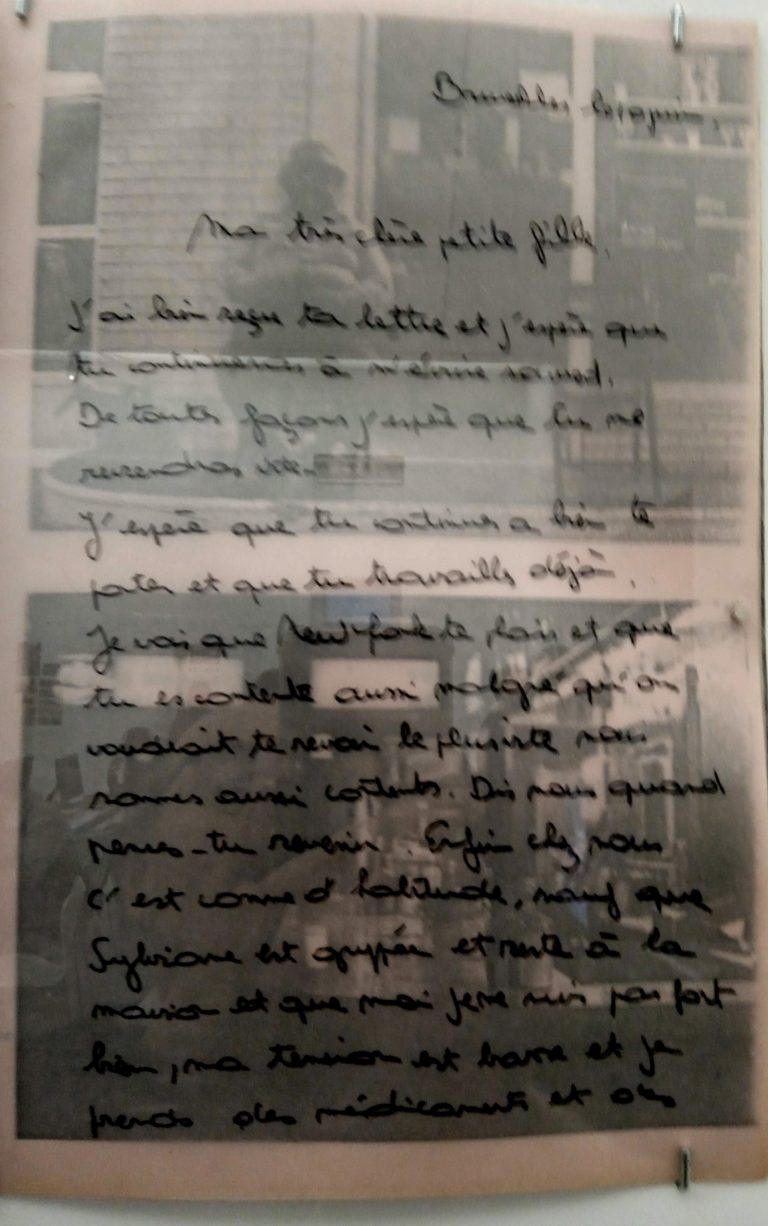 Bruxelles
Ma très chère petite fille,
J'ai bien reçue ta lettre et j'espère que
tu continueras à m'écrire souvent.
De toutes façons j'espère que tu me
reviendras vite
J'espère que tu continues a bien te
porter et que tu travailles déjà.
Je vois que New-York te plais et que
tu es contente aussi malgré qu'on
voudrait te revoir le plus vite nous
sommes aussi contents. Dis nous quand
penses-tu revenir. Enfin chez nous
c'est comme d'habitude, sauf que
Sylviane est grippée et reste à la
maison et que moi je ne suis pas fort
bien, ma tension est basse et je
prends des médicaments et des